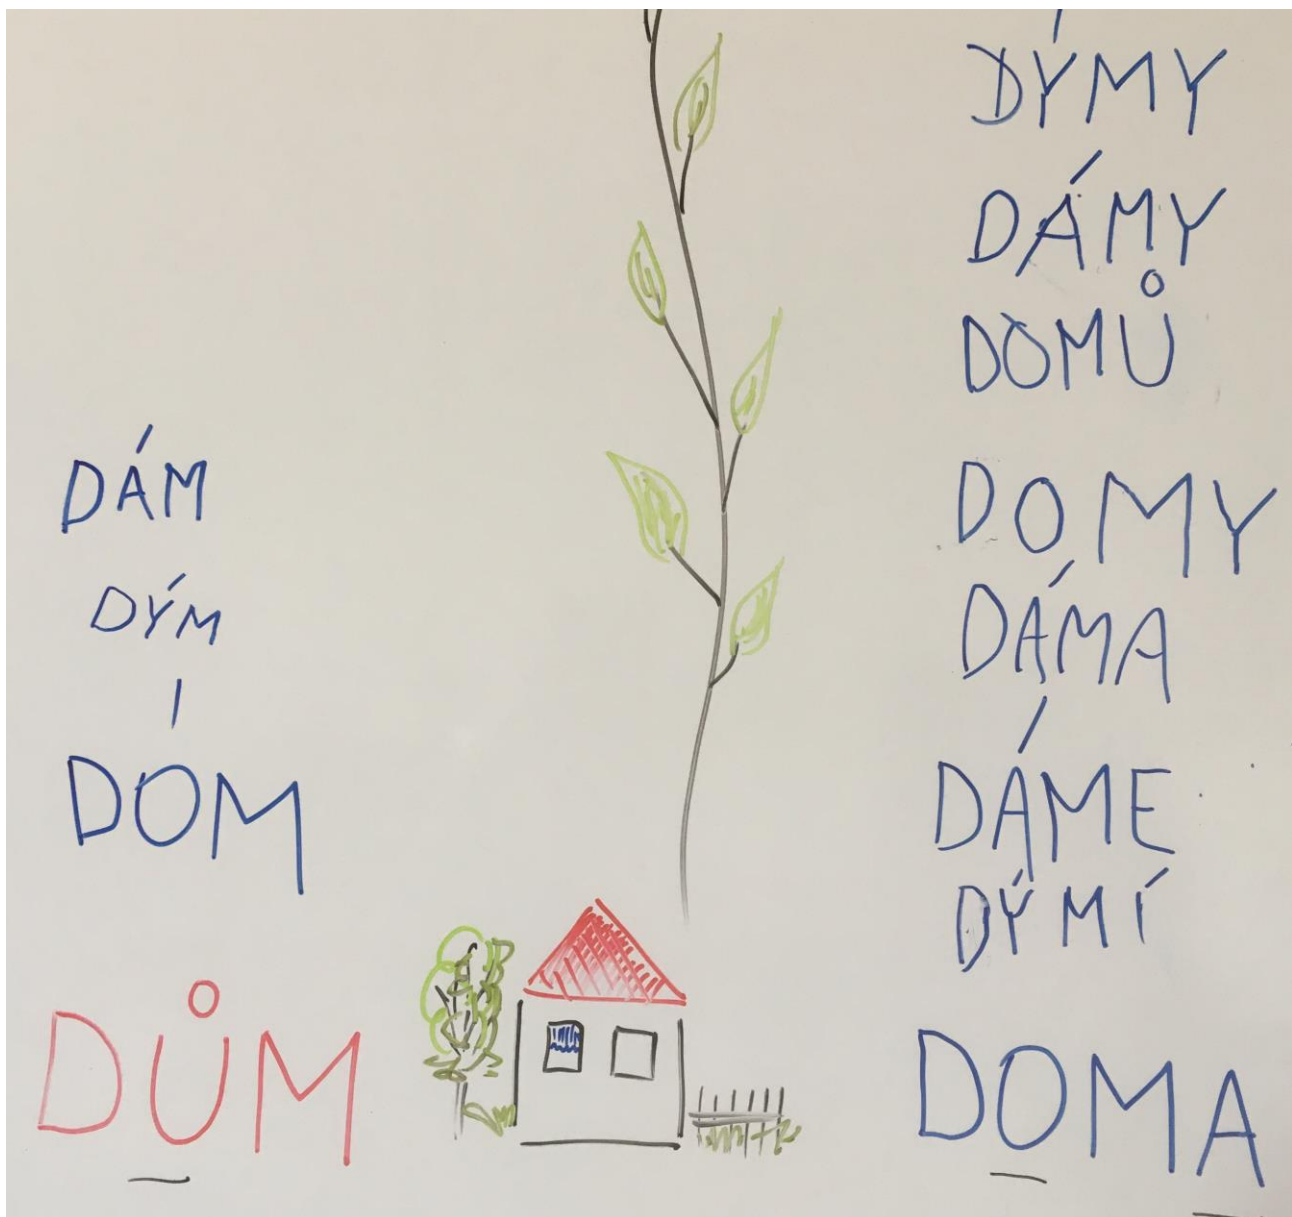 DÁM
DÝM
DÓM
DŮM
DÝMY
DÁMY
DOMŮ
DOMY
DÁMA
DÁME
DÝMÍ
DOMA